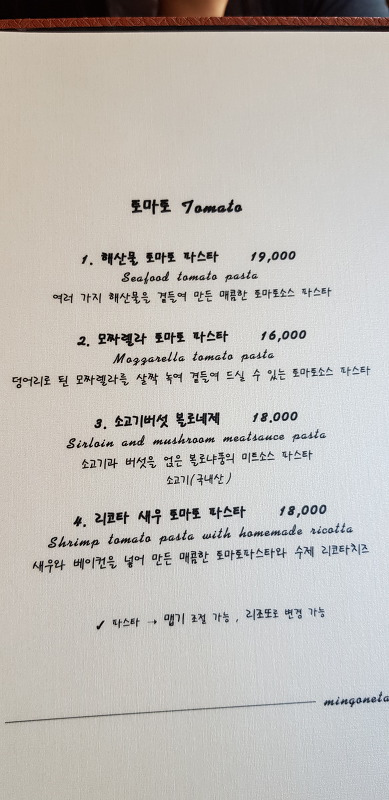 토마토 Tomato
1. 해산물 토마토 파스타 19,000
Seafood tomato pasta
여러 가지 해산물을 곁들여 만든 매콤한 토마토소스 파스타
2. 모짜렐라 토마토 파스타 16,000
Mozzarella tomato pasta
덩어리로 된 모짜렐라를 살짝 녹여 곁들여 드실 수 있는 토마토소스 파스타
3. 소고기버섯 볼로네제 18,000
Sirloin and mushroom meatsauce pasta
소고기과 버섯을 얹은 볼로냐풍의 미트소스 파스타
소고기(국내산)
4. 리코타 새우 토마토 파스타 18,000
Shrimp tomato pasta with homemade ricotta
새우와 베이컨을 넣어 만든 매콤한 토마토파스타와 수제 리코타치즈
✓ 파스타 → 맵기 조절 가능, 리조또로 변경 가능
mingoneta